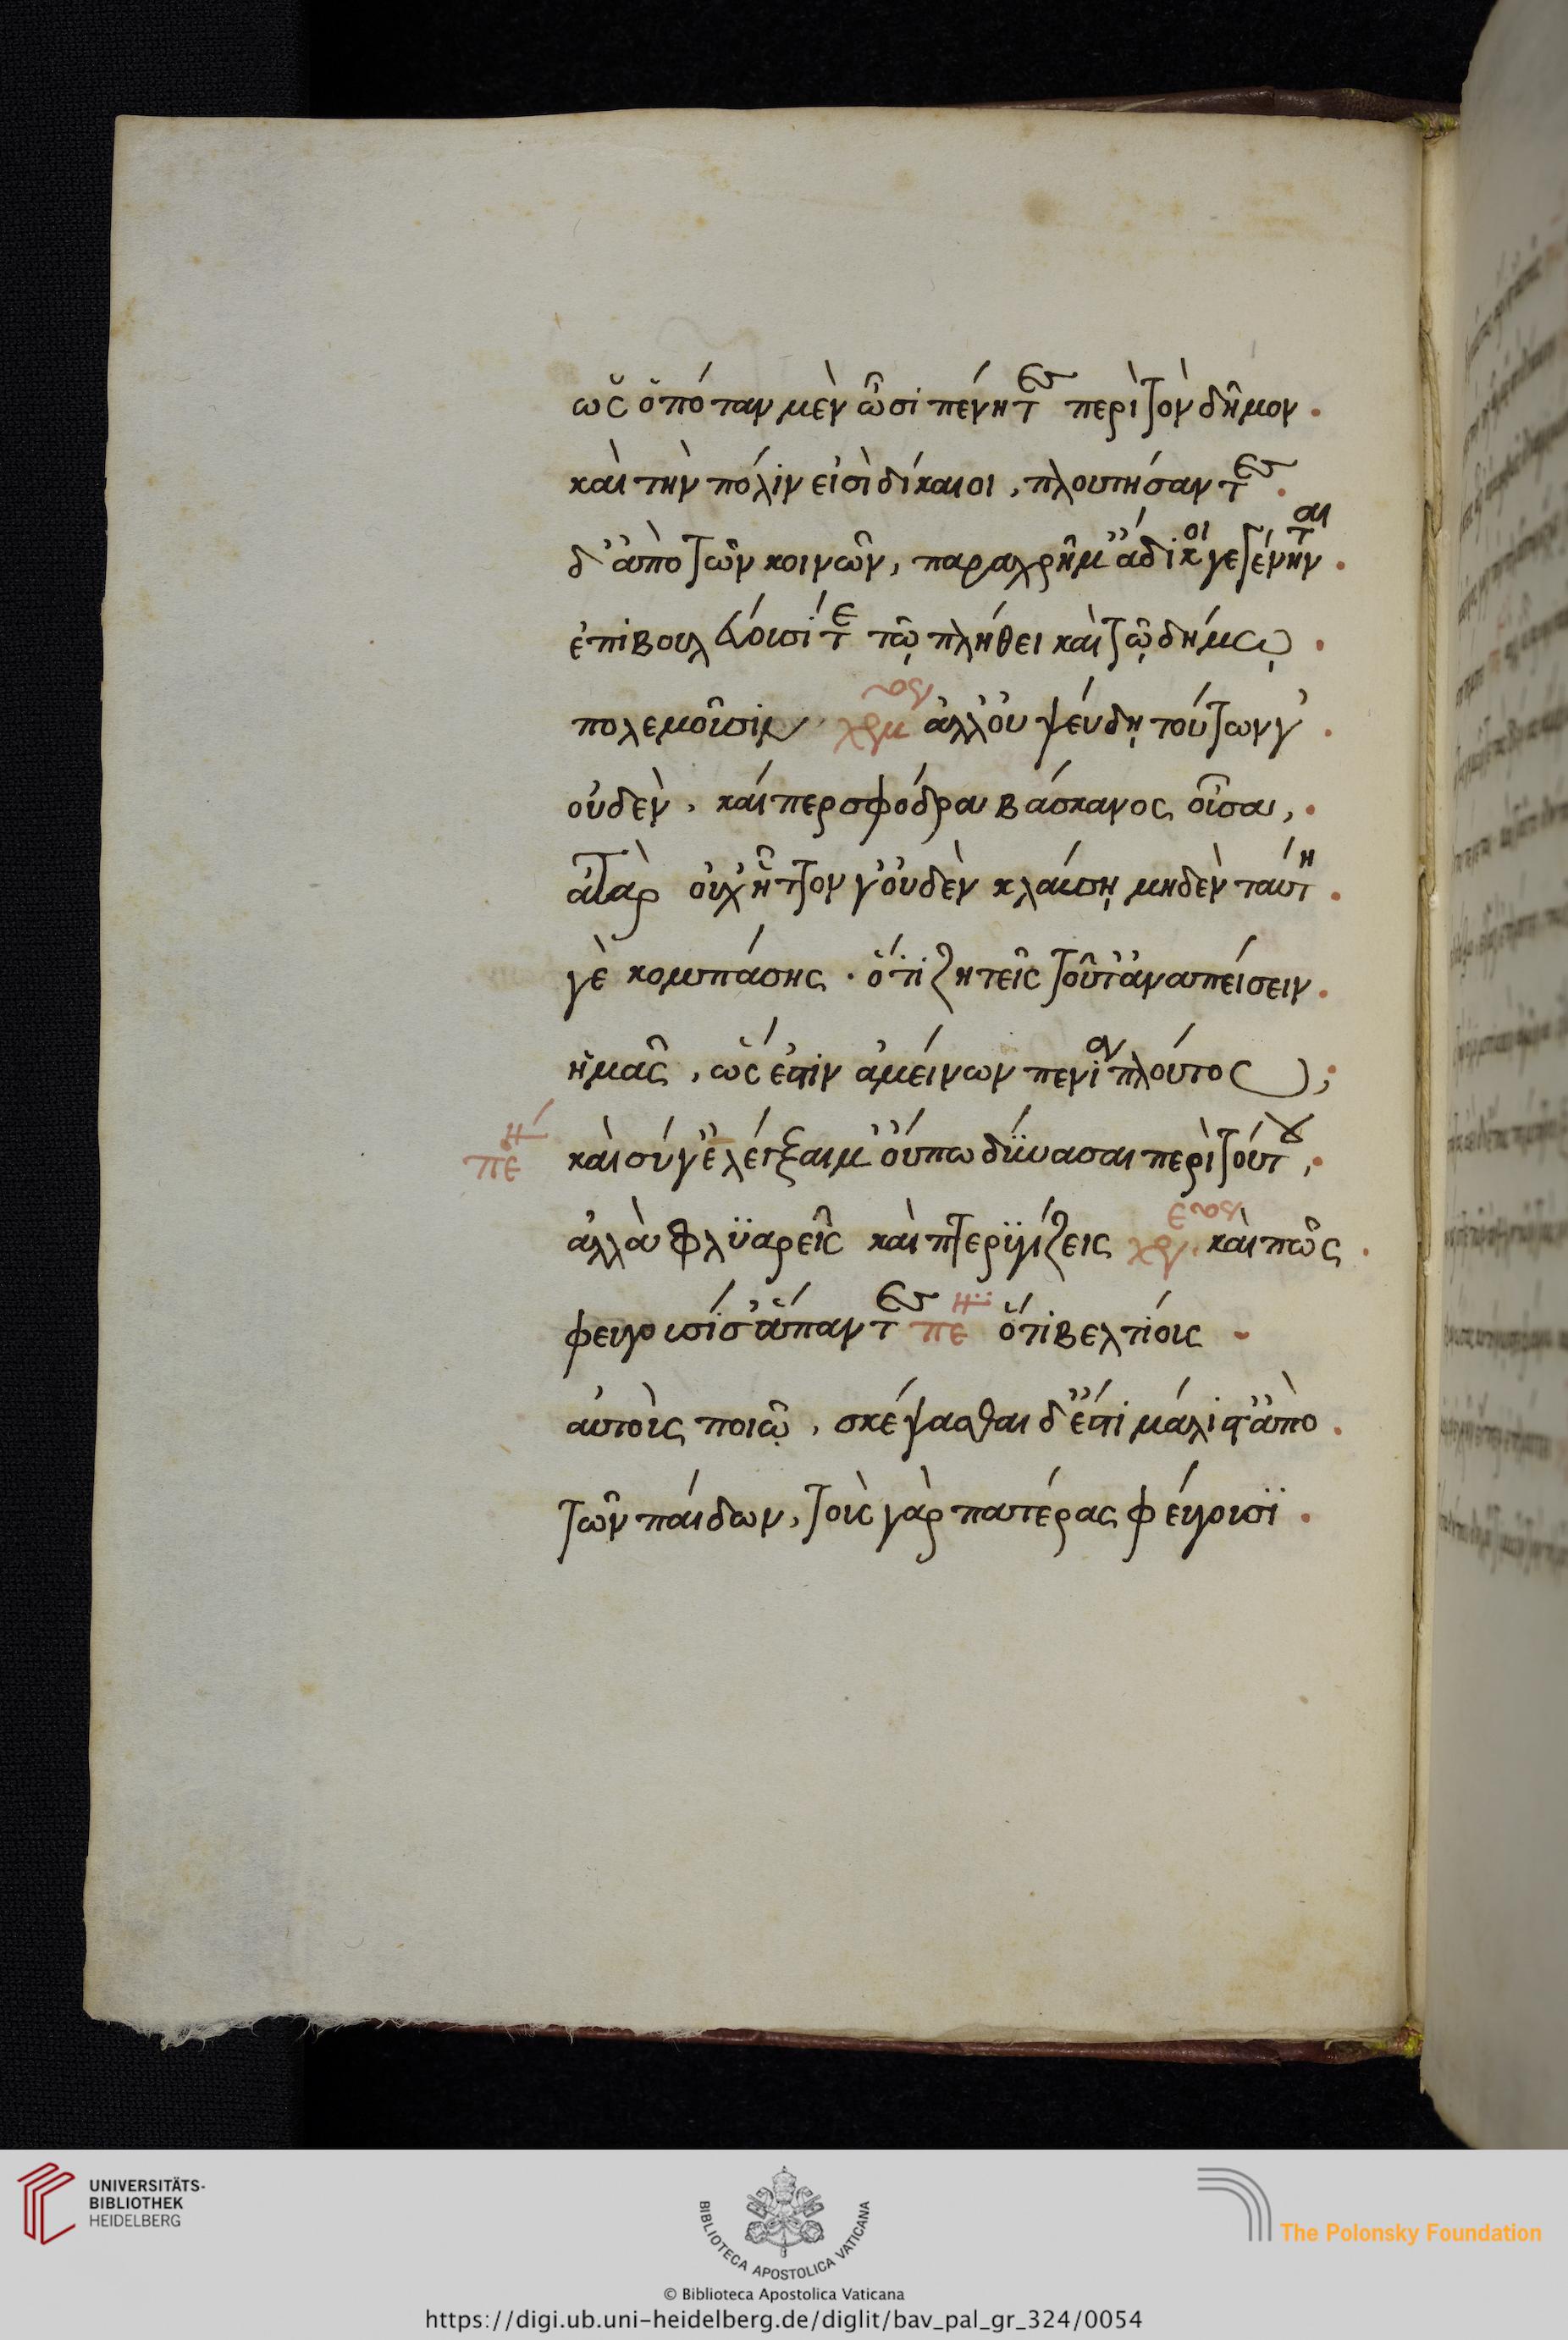 ὡς ὁπόταν μὲν ὦσι πένητες περὶ τὸν δῆμον.
καὶ τὴν πόλιν εἰσὶ δίκαιοι, πλουτήσαντες.
δ᾽ ἀπὸ τῶν κοινῶν, παραχρῆμ᾽ ἄδικοι γεγένηνται.
ἐπιβουλεύουσί τε τῷ πλήθει καὶ τῷ δήμῳ.
πολεμοῦσιν χρμ ἀλλ᾽ οὐ ψεύδῃ τούτων γ᾽.
οὐδὲν, καίπερ σφόδρα βάσκανος οὖσα,.
ἀτὰρ οὐχ ἧττον γ᾽ οὐδὲν κλαύσῃ μηδὲν ταύτη.
γὲ κομπάσης. ὅτι ζητεῖς τοῦτ᾽ ἀναπείσειν.
ἡμᾶς, ὡς ἔστιν ἀμείνων πενία πλούτου;
πε καὶ σύ γ᾽ ἐλέγξαι μ᾽ οὔπω δύνασαι περὶ τούτου,.
ἀλλὰ φλϋαρεῖς καὶ πτερϋγίζεις χρ. καὶ πῶς.
φεύγουσί σ᾽ ἅπαντες πε ὅτι βελτίους.
αὐτοὺς ποιῶ, σκέψασθαι δ᾽ ἔστι μάλιστ᾽ ἀπὸ.
τῶν παίδων, τοὺς γὰρ πατέρας φεύγουσϊ.
UNIVERSITÄTS-
BIBLIOTHEK
HEIDELBERG
BIBLIOTECA APOSTOLICA VATICANA
The Polonsky Foundation
© Biblioteca Apostolica Vaticana
https://digi.ub.uni-heidelberg.de/diglit/bav_pal_gr_324/0054